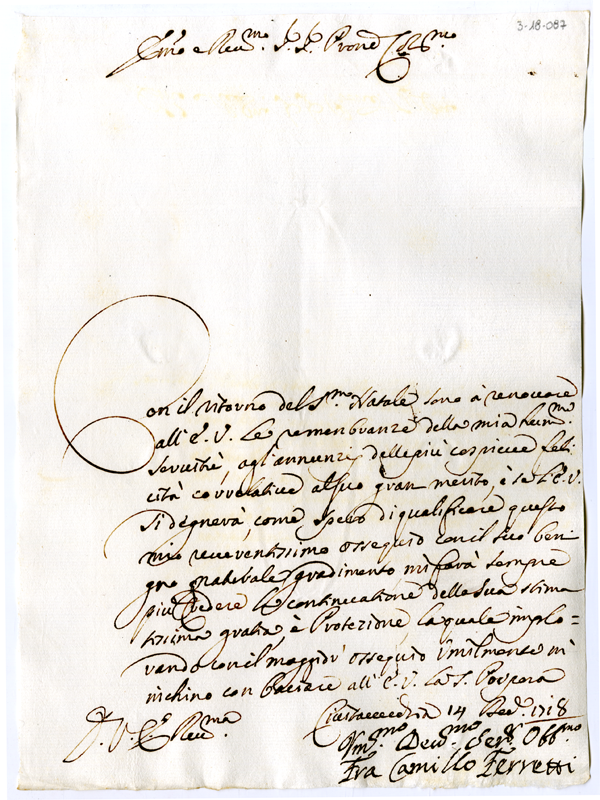 3-18-087
Em̃o e Reu.mo S.r S.r Prone Col.mo
Con il ritorno del S.mo Natale sono à renouare
all' E. V. le remenbranze della mia hum.ma
seruitù, agl'annunzi delle più cospicue feli-
cità correlatiue al suo gran merito, è se l'E.V.
si degnerà, come spero di qualificare questo
mio reuerentissimo ossequio con il suo beni-
gno gradimento mi farà sempre
più uedere la continuatione della sua stima-
tissima gratia, è Protezione la quale implo=
rando con il maggior ossequio Vmilmente m'
inchino con baciare all' E.V. la S. Porpora
D. V. E. Reu.ma
Ciuitauecchia 14 Dec.e 1718
Vm.mo Deu.mo Ser.e Obb.mo
Fra Camillo Ferretti